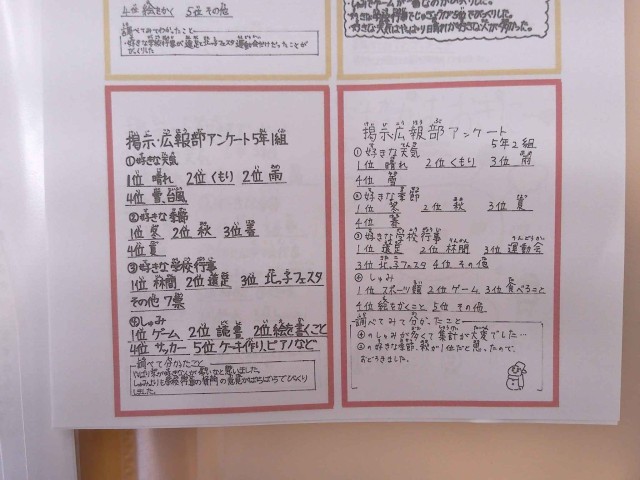 4位 絵をかく 5位 その他
調べてみてわかったこと
・好きな学校行事が遠足と北っ子フェスタ運動会だけだったことが
びっくりした
掲示・広報部アンケート5年1組
①好きな天気
1位 晴れ 2位 くもり 2位 雨
4位 雪、台風
②好きな季節
1位 冬 2位 秋 3位 春
4位 夏
③好きな学校行事
1位 林間 2位 遠足 3位 北っ子フェスタ
その他 7票
④しゅみ
1位 ゲーム 2位 読書 2位 絵を書くこと
4位 サッカー 5位 ケーキ作り、ピアノなど
調べて分かったこと
びっくり
しました。
掲示広報部アンケート
5年2組
①好きな天気
1位 晴れ 2位 くもり 3位 雨
4位 雪
②好きな季節
1位 冬 2位 秋 3位 夏
4位 春
③好きな学校行事
1位 遠足 2位 林間 3位 運動会
3位 北っ子フェスタ 4位 その他
④しゅみ
1位 スポーツ類 2位 ゲーム 3位 食べること
4位 絵をかくこと 5位 その他
調べてみて分かったこと
④のしゅみが多くて集計が大変でした…
②の好きな季節、秋が1位だと思ったので、
おどろきました。